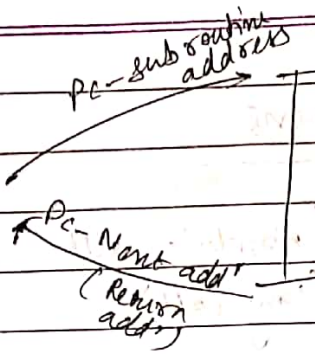 PC-subroutine
address
PC-Next addr
(Return
addr)